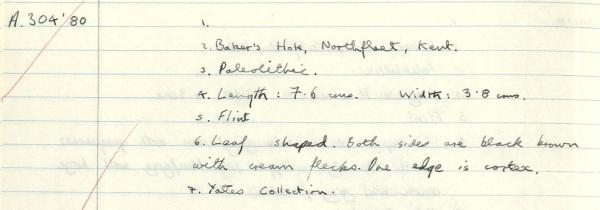 A.304'80
1.
2. Baker's Hole, Northfleet, Kent.
3. Paleolithic.
4. Length: 7.6 cms. Width: 3.8 cms.
5. Flint
6. Leaf shaped. Both sides are black brown
with cream flecks. One edge is cortex.
7. Yates Collection.